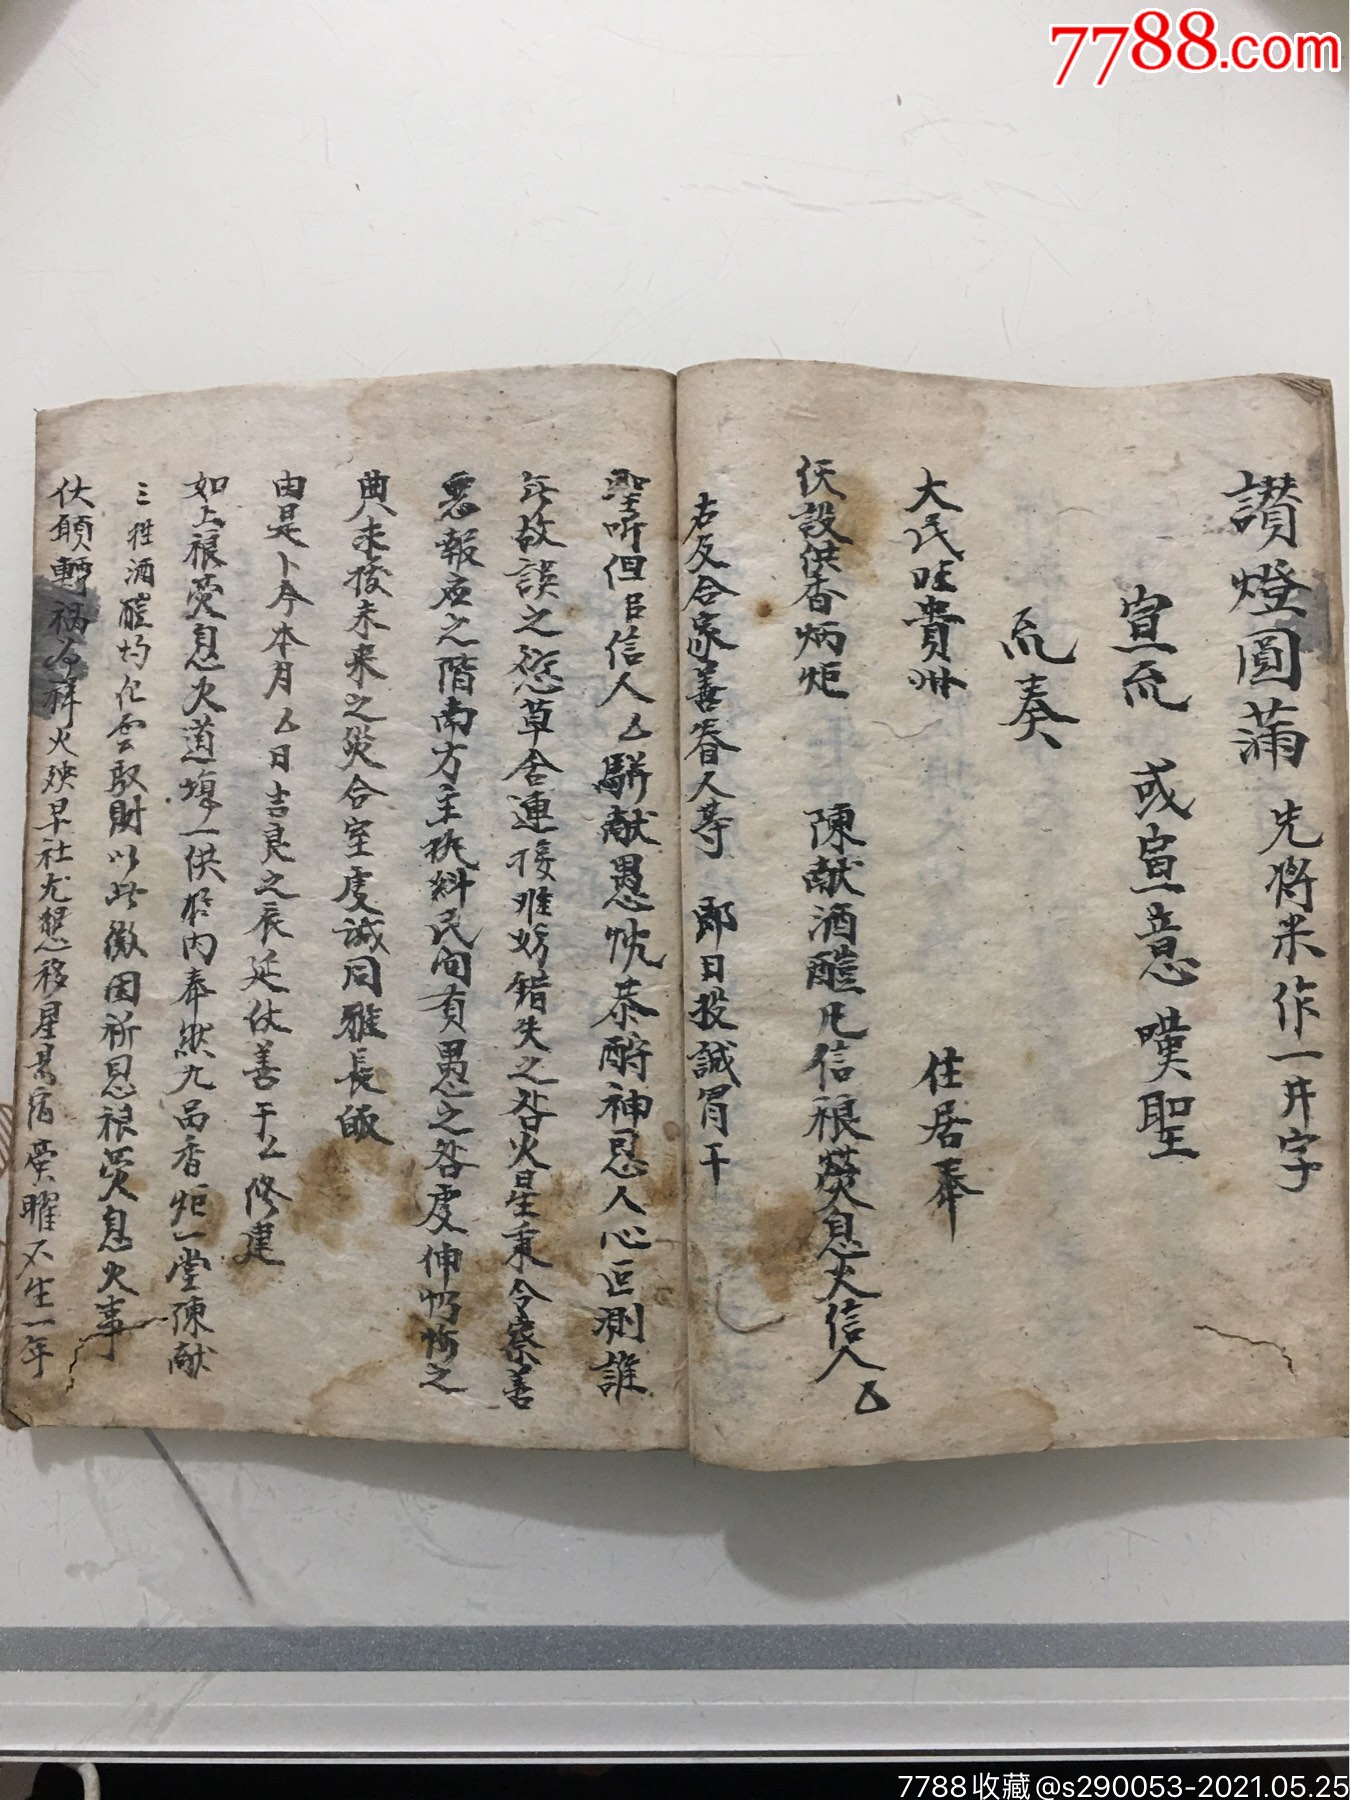 7788.com
讃燈圓滿 先將米作一井字
宣疏 或宣意 嘆聖
疏奏
大民 貴州 住居奉
天設供香炳炬 陳献酒醴凡信禳熒息火信人厶
右及合家善眷人等 即日投誠冒干
聖听但信人厶 献愚忱恭酧神恩人心叵測誰
此故誤之愆草舍連接难妨錯失之咎火星秉令察善
悪報应之階南方主 民间有愚之咎虔伸 之
典未 未来之災合室虔誠同 長
由是卜今本月厶日吉良之辰延仗善于厶修建
如上禳熒息火道塲一供 内奉然九品香炬一堂陳献
三牲酒醴灼化雲馭財以此微因祈恩禳熒息火事
伏願轉禍为祥火殃早 尤懇移星 宿 曜不生一年
7788收藏@s290053-2021.05.25